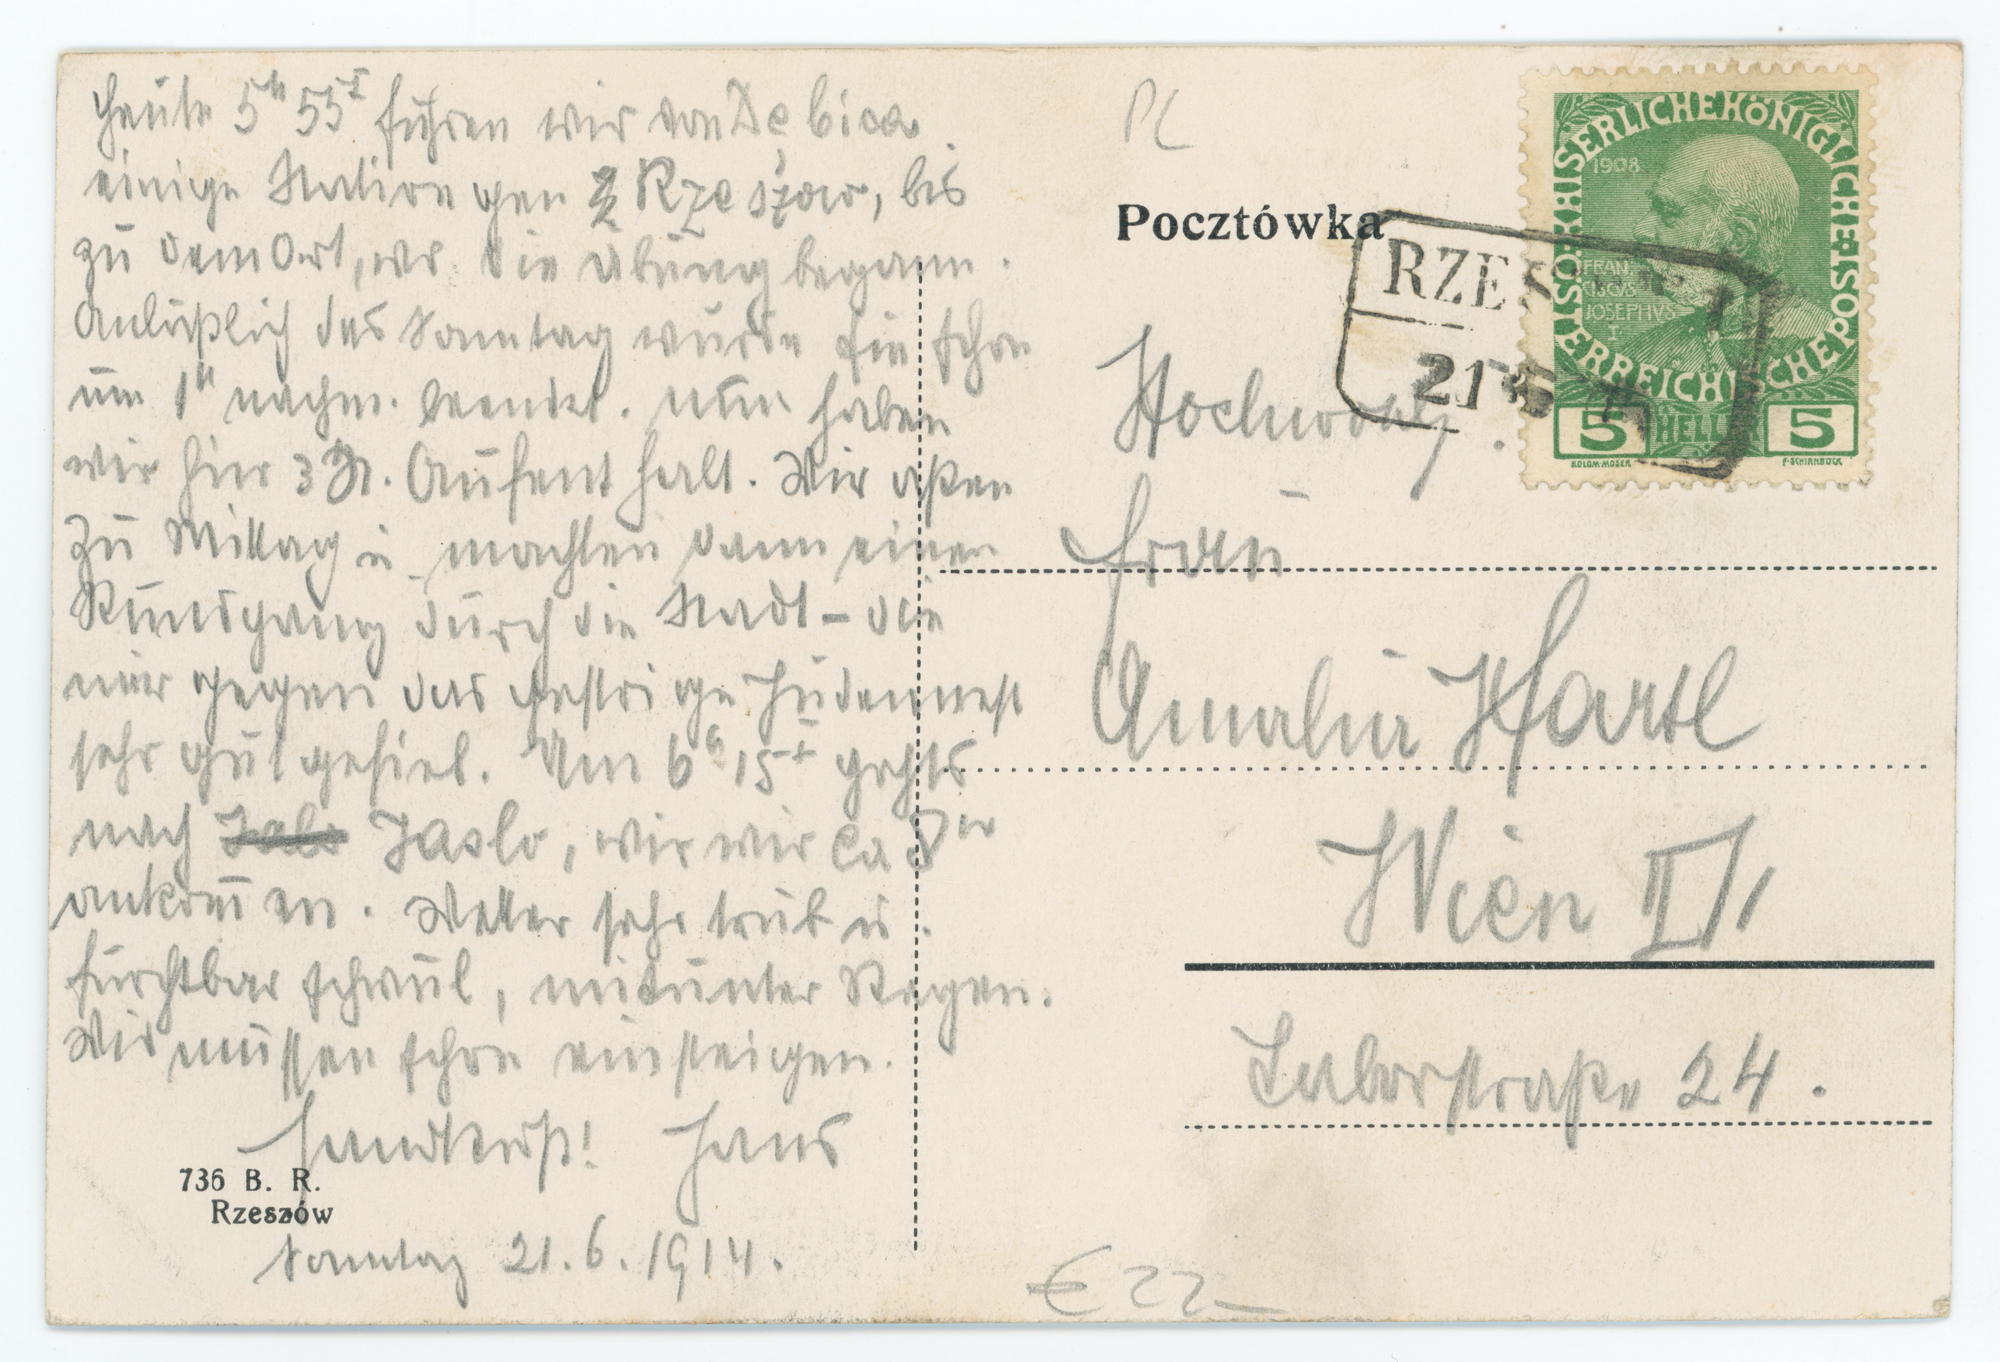 Heute 5h 55I fuhren wir von Dębica
einige Station gen Rzeszów, bis
zu dem Ort, wo die Übung begann.
Anläßlich des Sonntag wurde sie schon
um 1h nachm. beendet. Nun haben
wir hier 3 St. Aufenthalt. Wir aßen
zu Mittag u. machten dann einen
Rundgang durch die Stadt – die
mir gegen das gestrige Judennest
sehr gut gefiel. Um 6h 15I gehts
nach Jaslo, wir ca 8
ankom̅en. Wetter sehr trüb u.
furchtbar schwül, mitunter Regen.
Wir müssen schon einsteigen.
Handkuß! Hans
736 B. R.
Rzeszów
Sonntag 21.6.1914.
PL
Pocztówka
RZESZÓW 1
21 6
KAISERLICHE KÖNIGLICHE ÖSTERREICHISCHE POST
1908
FRAN
CISCVS
JOSEPHVS
I.
5 HELLER 5
KOLOM·MOSER
F·SCHIRNBÖCK
Hochwohlg.
Frau
Amalia Hartl
Wien II/1
Taborstraße 24.
€ 22–